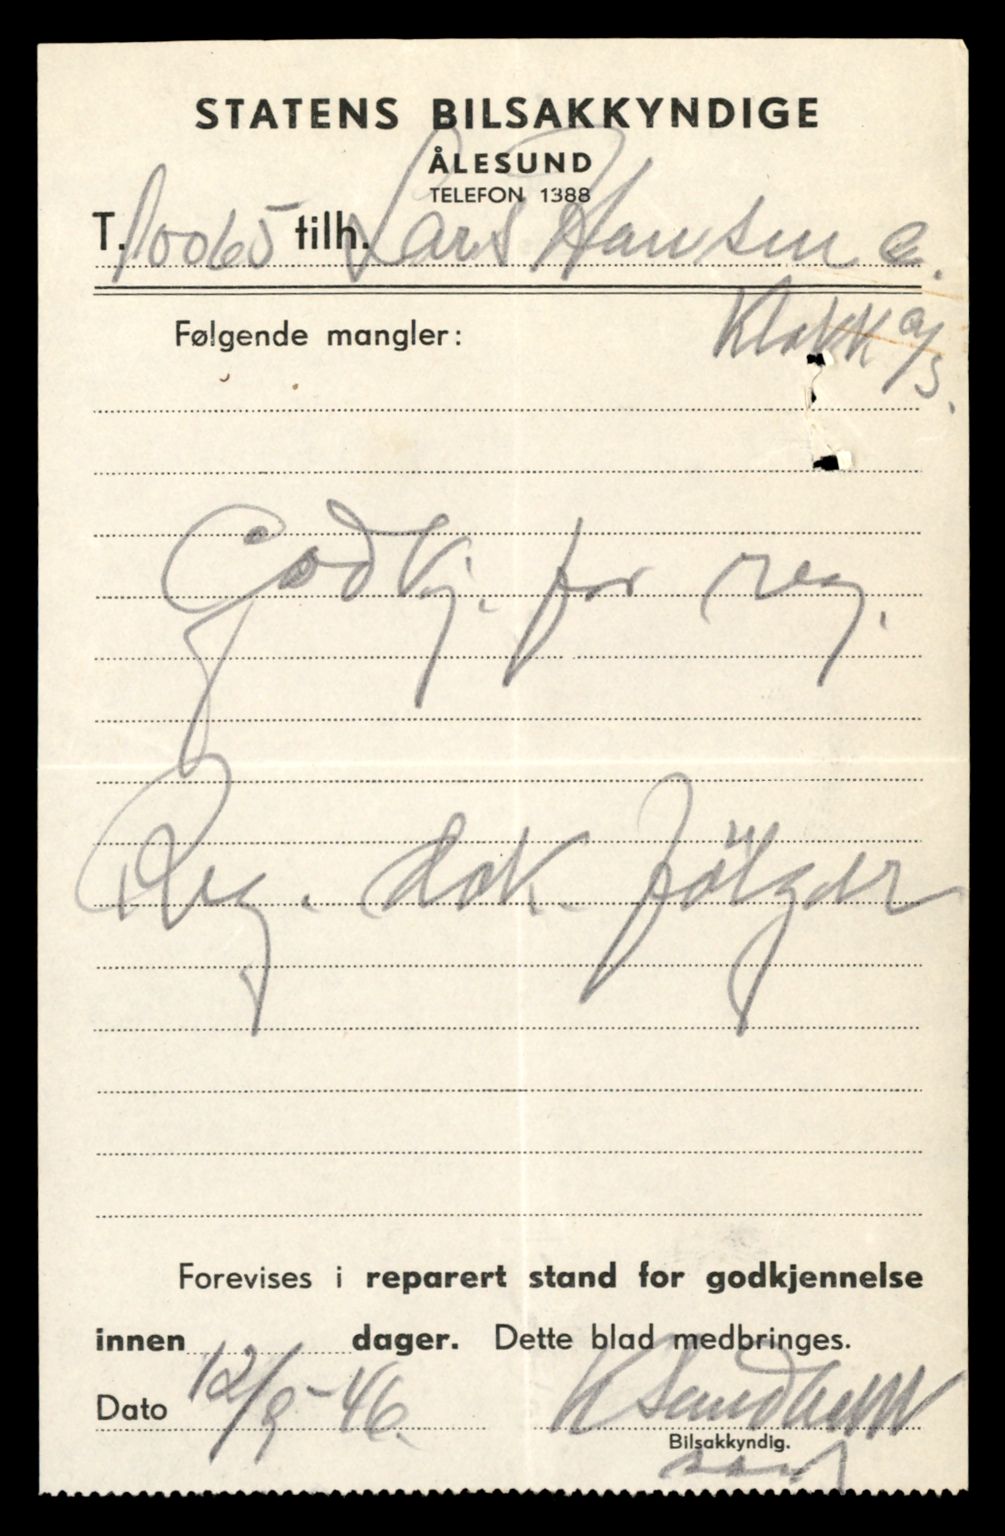 STATENS BILSAKKYNDIGE
ÅLESUND
TELEFON 1388
T. 10065 tilh. Lars Hansen &.
Klokk a/s.
Følgende mangler:
Godkj. for reg.
Reg. dok. følger
Forevises i reparert stand for godkjennelse
innen dager. Dette blad medbringes.
Dato 12/9-46. K Sundholm
Bilsakkyndig.